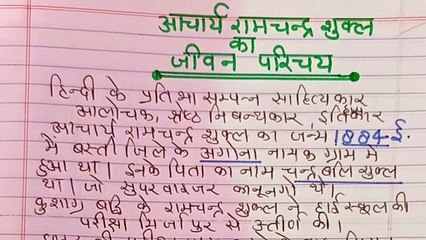 आचार्य रामचन्द्र शुक्ल
का
जीवन परिचय
हिन्दी के प्रतिभा सम्पन्न साहित्यकार
आलोचक, श्रेष्ठ निबन्धकार, इतिकार
आचार्य रामचन्द्र शुक्ल का जन्म 1884 ई.
में बस्ती जिले के अगोना नायक ग्राम में
हुआ था। इनके पिता का नाम चन्द्र बलि शुक्ल
था। जो सुपरवाइजर कानूनगो थे।
कुशाग्र बुद्धि के रामचन्द्र शुक्ल ने हाईस्कूल की
परीक्षा मिर्जापुर से उत्तीर्ण की।